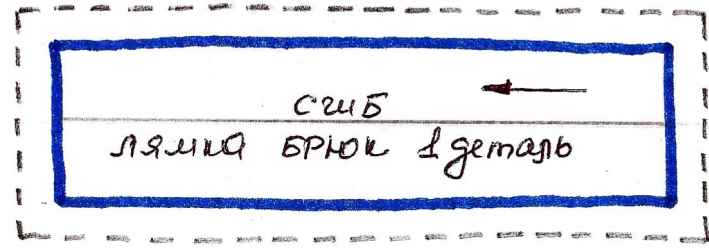 СГИБ
ЛЯМКА БРЮК 1 деталь